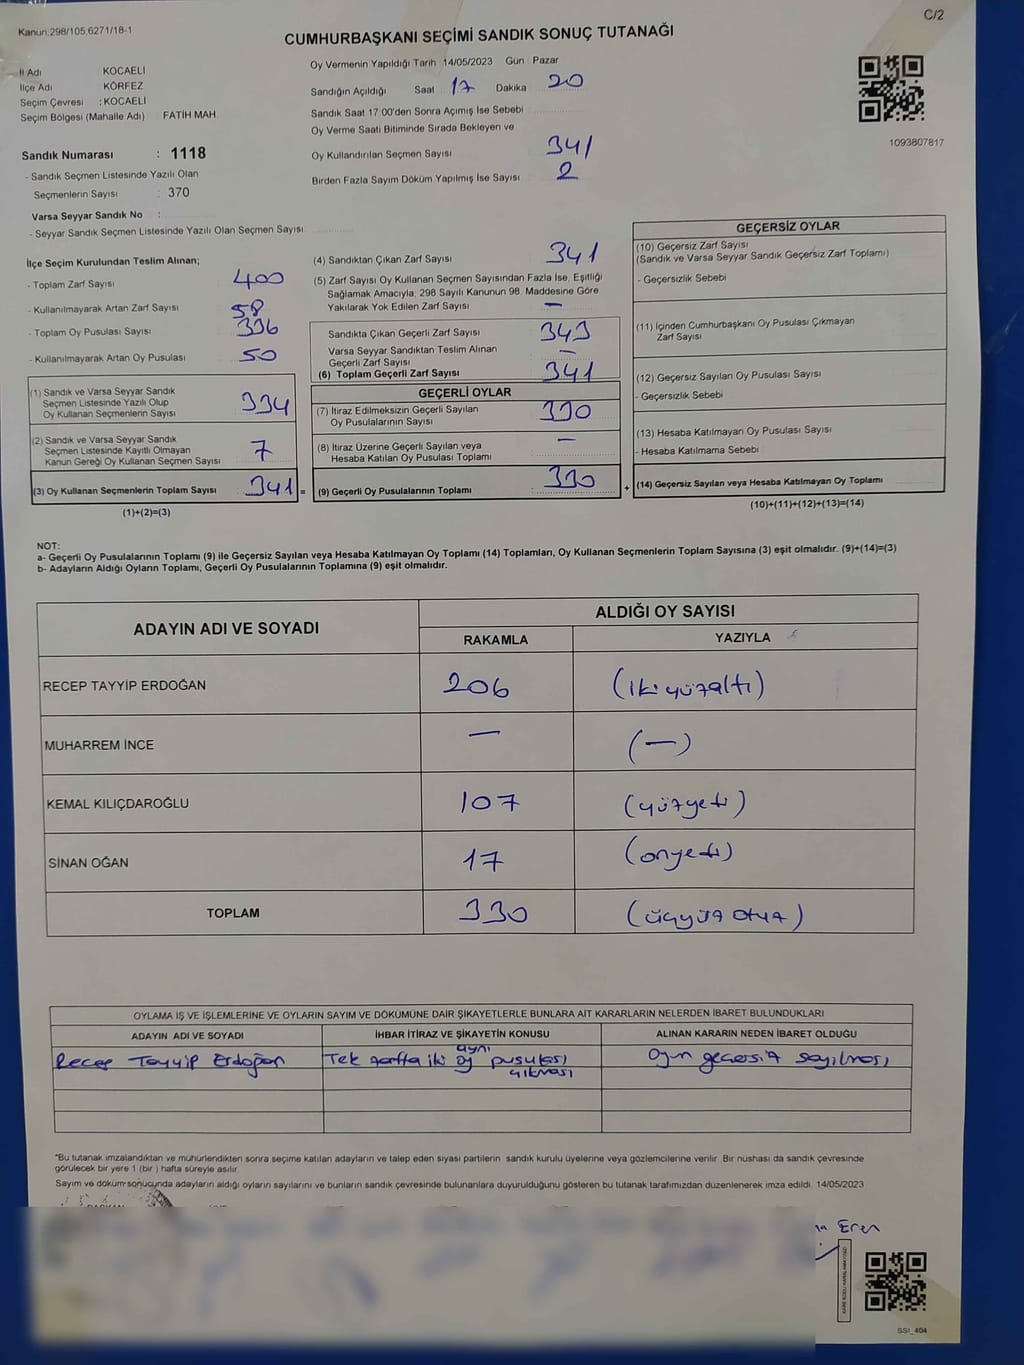 Kanun:298/105.6271/18-1
C/2
CUMHURBAŞKANI SEÇİMİ SANDIK SONUÇ TUTANAĞI
İl Adı KOCAELİ
İlçe Adı KÖRFEZ
Seçim Çevresi : KOCAELİ
Seçim Bölgesi (Mahalle Adı) FATİH MAH
Sandık Numarası : 1118
- Sandık Seçmen Listesinde Yazılı Olan
Seçmenlerin Sayısı : 370
Varsa Seyyar Sandık No :
- Seyyar Sandık Seçmen Listesinde Yazılı Olan Seçmen Sayısı
Oy Vermenin Yapıldığı Tarih 14/05/2023 Gün Pazar
Sandığın Açıldığı Saat 17 Dakika 20
Sandık Saat 17.00'den Sonra Açımış İse Sebebi
Oy Verme Saati Bitiminde Sırada Bekleyen ve
Oy Kullandırılan Seçmen Sayısı 341
Birden Fazla Sayım Döküm Yapılmış İse Sayısı 2
1093807817
İlçe Seçim Kurulundan Teslim Alınan;
- Toplam Zarf Sayısı 400
- Kullanılmayarak Artan Zarf Sayısı 58
- Toplam Oy Pusulası Sayısı 336
- Kullanılmayarak Artan Oy Pusulası 50
(1) Sandık ve Varsa Seyyar Sandık
Seçmen Listesinde Yazılı Olup
Oy Kullanan Seçmenlerin Sayısı 334
(2) Sandık ve Varsa Seyyar Sandık
Seçmen Listesinde Kayıtlı Olmayan
Kanun Gereği Oy Kullanan Seçmen Sayısı 7
(3) Oy Kullanan Seçmenlerin Toplam Sayısı 341 =
(1)+(2)=(3)
(4) Sandıktan Çıkan Zarf Sayısı 341
(5) Zarf Sayısı Oy Kullanan Seçmen Sayısından Fazla İse, Eşitliği
Sağlamak Amacıyla, 298 Sayılı Kanunun 98. Maddesine Göre
Yakılarak Yok Edilen Zarf Sayısı —
Sandıkta Çıkan Geçerli Zarf Sayısı 343
Varsa Seyyar Sandıktan Teslim Alınan
Geçerli Zarf Sayısı —
(6) Toplam Geçerli Zarf Sayısı 341
GEÇERLİ OYLAR
(7) İtiraz Edilmeksizin Geçerli Sayılan
Oy Pusulalarının Sayısı 330
(8) İtiraz Üzerine Geçerli Sayılan veya
Hesaba Katılan Oy Pusulası Toplamı —
(9) Geçerli Oy Pusulalarının Toplamı 330 +
GEÇERSİZ OYLAR
(10) Geçersiz Zarf Sayısı
(Sandık ve Varsa Seyyar Sandık Geçersiz Zarf Toplamı)
- Geçersizlik Sebebi
(11) İçinden Cumhurbaşkanı Oy Pusulası Çıkmayan
Zarf Sayısı
(12) Geçersiz Sayılan Oy Pusulası Sayısı
- Geçersizlik Sebebi
(13) Hesaba Katılmayan Oy Pusulası Sayısı
- Hesaba Katılmama Sebebi
(14) Geçersiz Sayılan veya Hesaba Katılmayan Oy Toplamı
(10)+(11)+(12)+(13)=(14)
NOT:
a- Geçerli Oy Pusulalarının Toplamı (9) ile Geçersiz Sayılan veya Hesaba Katılmayan Oy Toplamı (14) Toplamları, Oy Kullanan Seçmenlerin Toplam Sayısına (3) eşit olmalıdır. (9)+(14)=(3)
b- Adayların Aldığı Oyların Toplamı, Geçerli Oy Pusulalarının Toplamına (9) eşit olmalıdır.
ADAYIN ADI VE SOYADI ALDIĞI OY SAYISI
RAKAMLA YAZIYLA
RECEP TAYYİP ERDOĞAN 206 (ikiyüzaltı)
MUHARREM İNCE — (—)
KEMAL KILIÇDAROĞLU 107 (yüzyedi)
SİNAN OĞAN 17 (onyedi)
TOPLAM 330 (üçyüz otuz)
OYLAMA İŞ VE İŞLEMLERİNE VE OYLARIN SAYIM VE DÖKÜMÜNE DAİR ŞİKAYETLERLE BUNLARA AİT KARARLARIN NELERDEN İBARET BULUNDUKLARI
ADAYIN ADI VE SOYADI İHBAR İTİRAZ VE ŞİKAYETİN KONUSU ALINAN KARARIN NEDEN İBARET OLDUĞU
Recep Tayyip Erdoğan Tek zarfta iki aynı oy pusulası çıkması Oyun geçersiz sayılması
*Bu tutanak imzalandıktan ve mühürlendikten sonra seçime katılan adayların ve talep eden siyasi partilerin sandık kurulu üyelerine veya gözlemcilerine verilir. Bir nüshası da sandık çevresinde
görülecek bir yere 1 (bir ) hafta süreyle asılır.
Sayım ve döküm sonucunda adayların aldığı oyların sayılarını ve bunların sandık çevresinde bulunanlara duyurulduğunu gösteren bu tutanak tarafımızdan düzenlenerek imza edildi. 14/05/2023
Eren
SSI_404